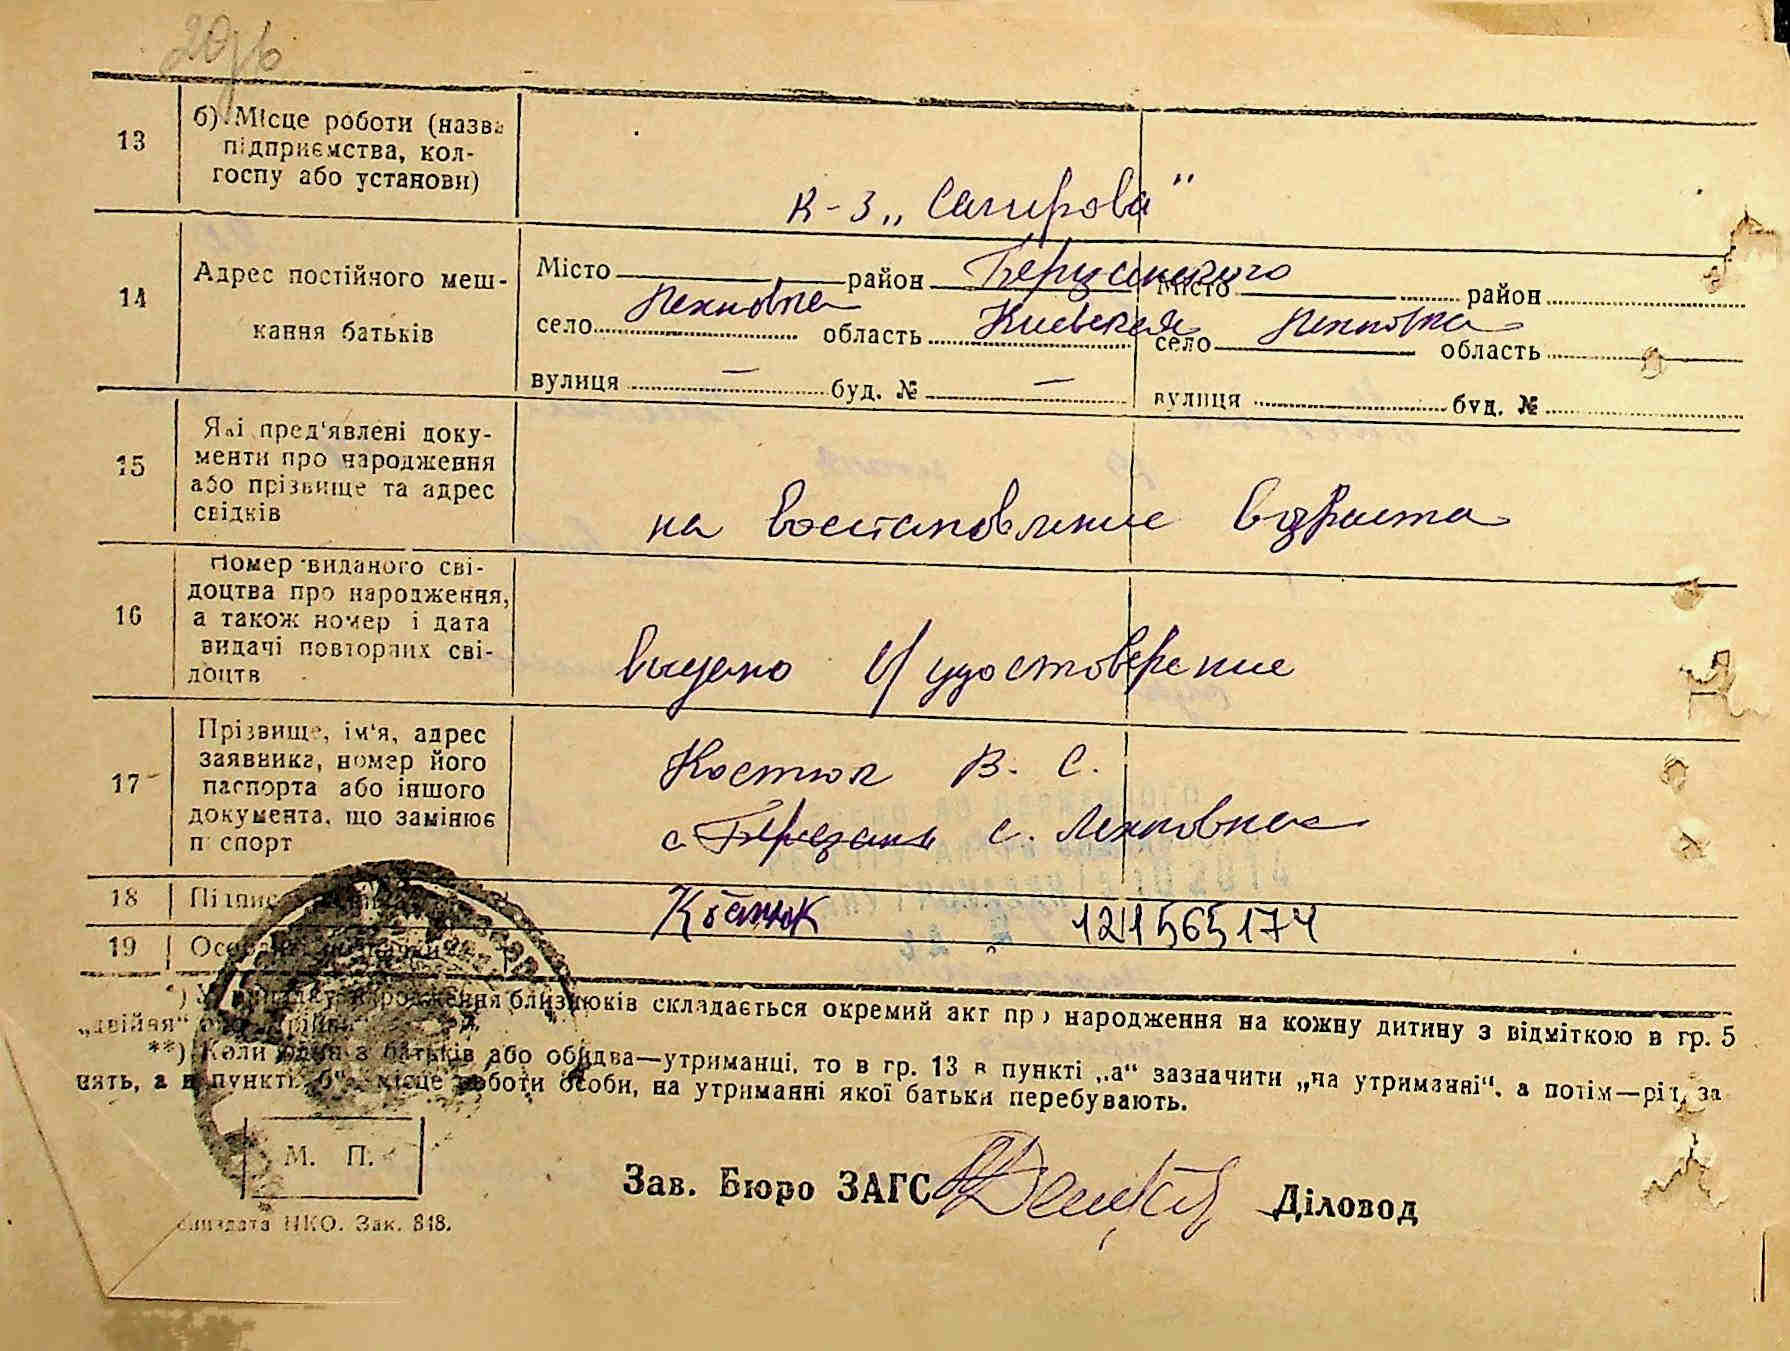 20
13
б) Місце роботи (назва
підприємства, кол-
госпу або установи)
к-з „
14
Адрес постійного меш-
кання батьків
Місто район
село Лехновка область Киевская
вулиця — буд. № —
Місто район
село Лехновка область
вулиця буд. №
15
Які пред'явлені доку-
менти про народження
або прізвище та адрес
свідків
на востановление возраста
16
Номер виданого сві-
доцтва про народження,
а також номер і дата
видачі повторних сві-
доцтв
выдано удостоверение
17
Прізвище, ім'я, адрес
заявника, номер його
паспорта або іншого
документа, що замінює
паспорт
Костюк В. С.
с. Березань с. Лехновка
18
Підпис
Костюк 121565174
19
*) У випадку народження близнюків складається окремий акт про народження на кожну дитину з відміткою в гр. 5
„двійня“
**) Коли один з батьків або обидва—утриманці, то в гр. 13 в пункті „а“ зазначити „на утриманні“, а потім—рід за
нять, а в пункті „б“ місце роботи особи, на утриманні якої батьки перебувають.
М. П.
Зав. Бюро ЗАГС Діловод
НКО. Зак. 818.